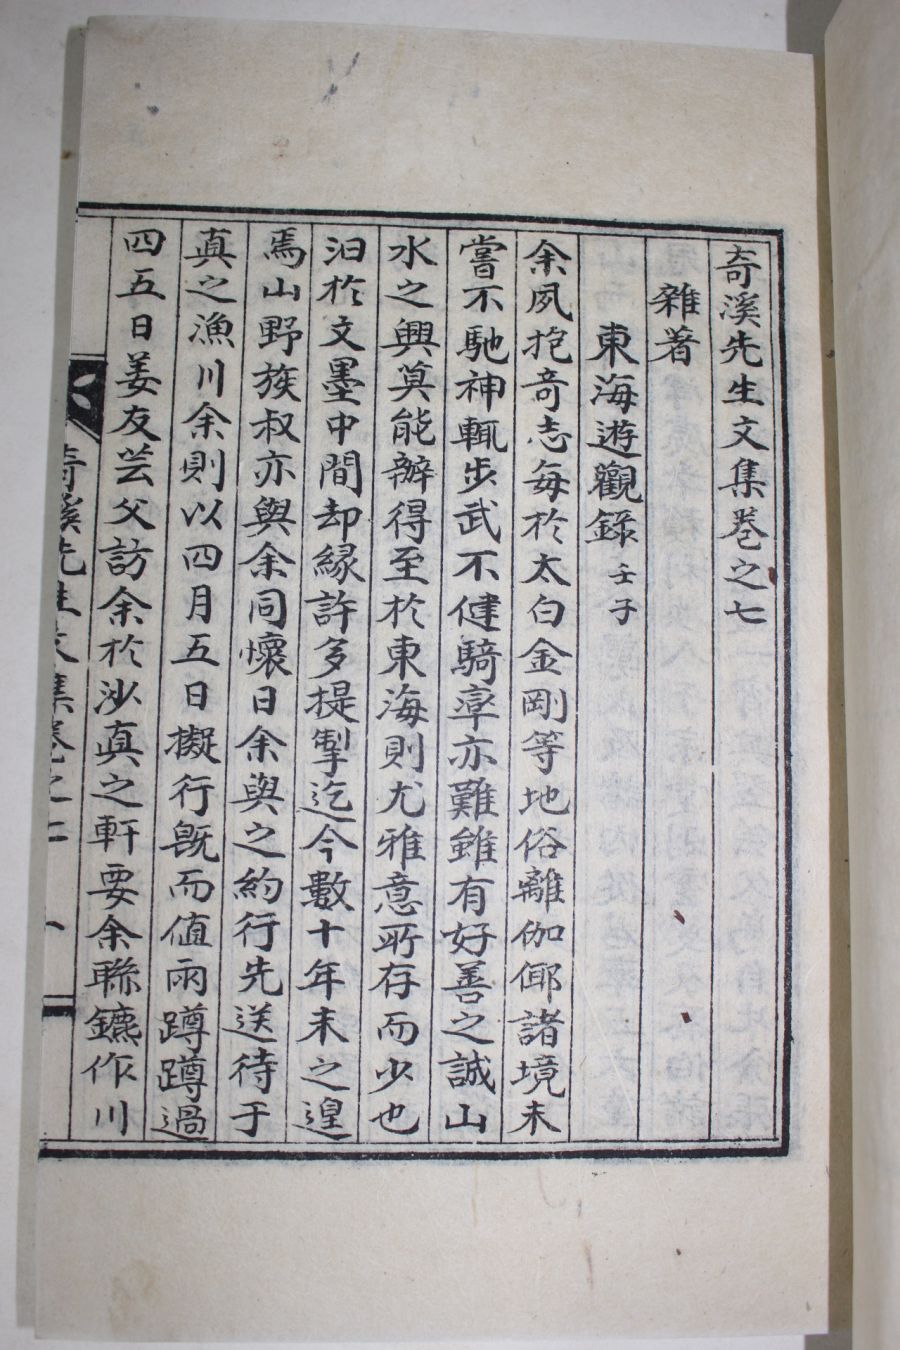 奇溪先生文集卷之七
雜著
東海遊觀錄 壬子
余夙抱奇志每於太白金剛等地俗離伽倻諸境未
嘗不馳神輒步武不健騎率亦難雖有好善之誠山
水之興莫能辦得至於東海則尤雅意所存而少也
汩於文墨中間却緣許多提掣迄今數十年未之遑
焉山野族叔亦與余同懷日余與之約行先送待于
真之漁川余則以四月五日擬行旣而値雨蹲蹲過
四五日姜友芸父訪余於沙真之軒要余聯鑣作川
奇溪先生文集卷之七